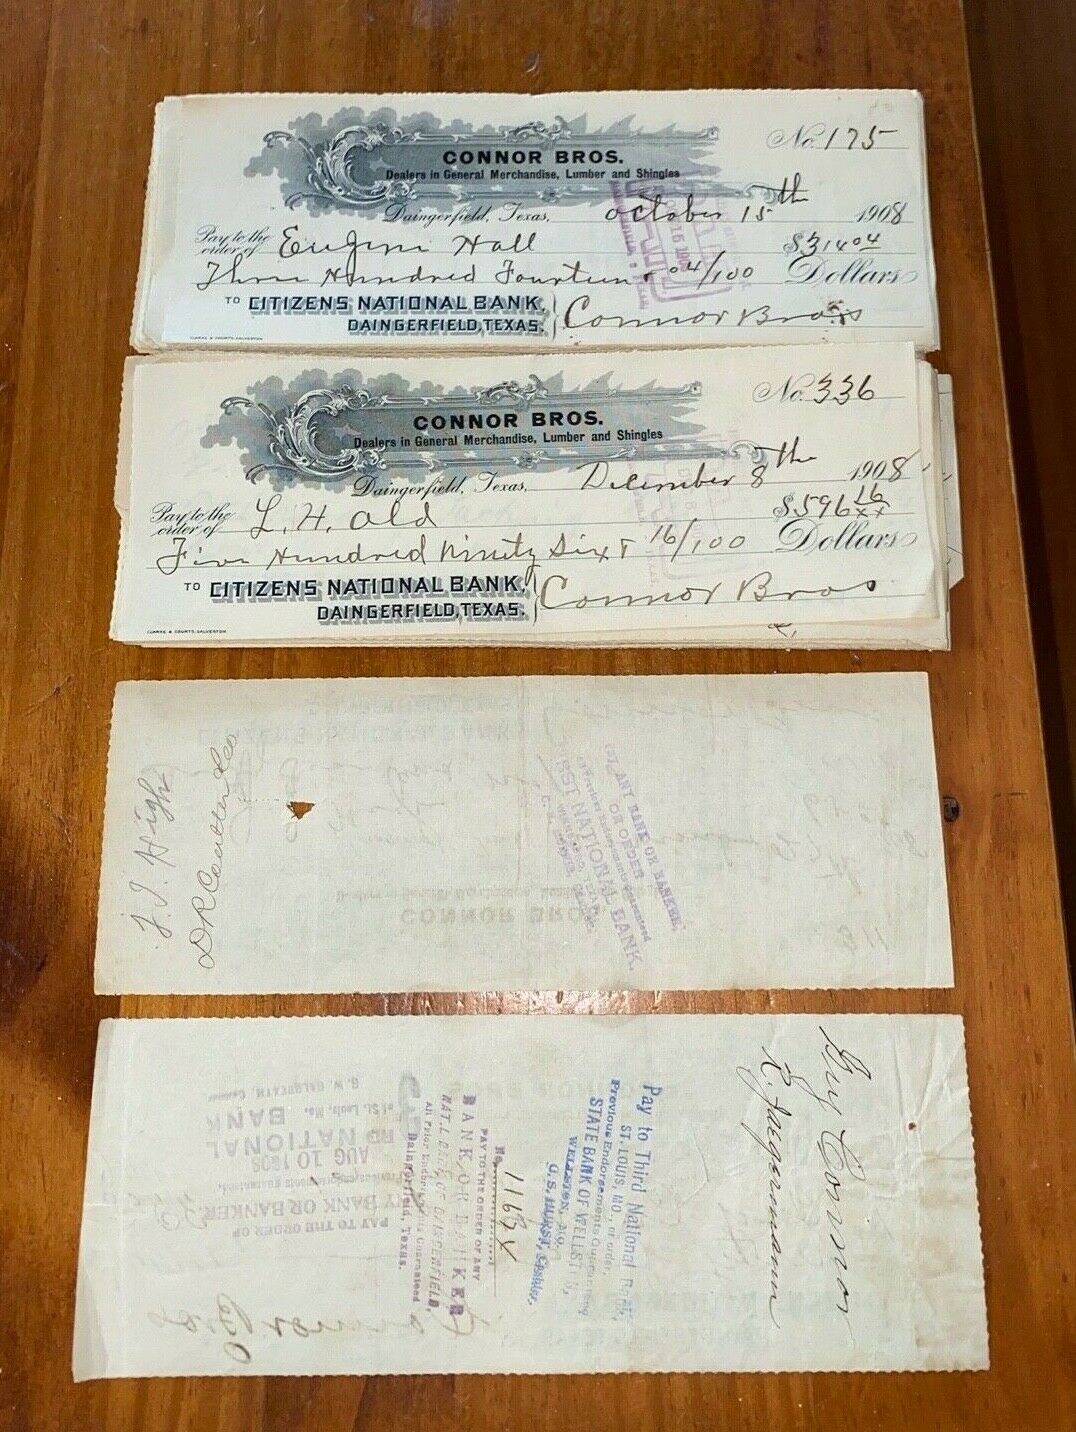 No. 175
CONNOR BROS.
Dealers in General Merchandise, Lumber and Shingles
Daingerfield, Texas, October 15th 1908
Pay to the order of Eugene Hall $314 04
Three Hundred Fourteen & 04/100 Dollars
TO CITIZENS NATIONAL BANK,
DAINGERFIELD, TEXAS.
Connor Bros
CLARKE & COURTS, GALVESTON
No. 336
CONNOR BROS.
Dealers in General Merchandise, Lumber and Shingles
Daingerfield, Texas, December 8th 1908
Pay to the order of L. H. Old $596 16/xx
Five Hundred Ninety Six & 16/100 Dollars
TO CITIZENS NATIONAL BANK,
DAINGERFIELD, TEXAS.
Connor Bros
CLARKE & COURTS, GALVESTON
High
ANY BANK OR BANKER,
OR ORDER
NATIONAL BANK.
CONNOR BROS
Guy Connor
Pay to Third National Bank,
ST. LOUIS, MO., or order,
Previous Endorsements Guaranteed
STATE BANK OF WELLSTON,
WELLSTON, MO.
Cashier.
No.
PAY TO THE ORDER OF ANY
BANK OR BANKER
DAINGERFIELD,
Daingerfield, Texas.
PAY TO THE ORDER OF
ANY BANK OR BANKER
AUG 10 1908
RD NATIONAL
BANK
of St. Louis, Mo.
Connor Bros